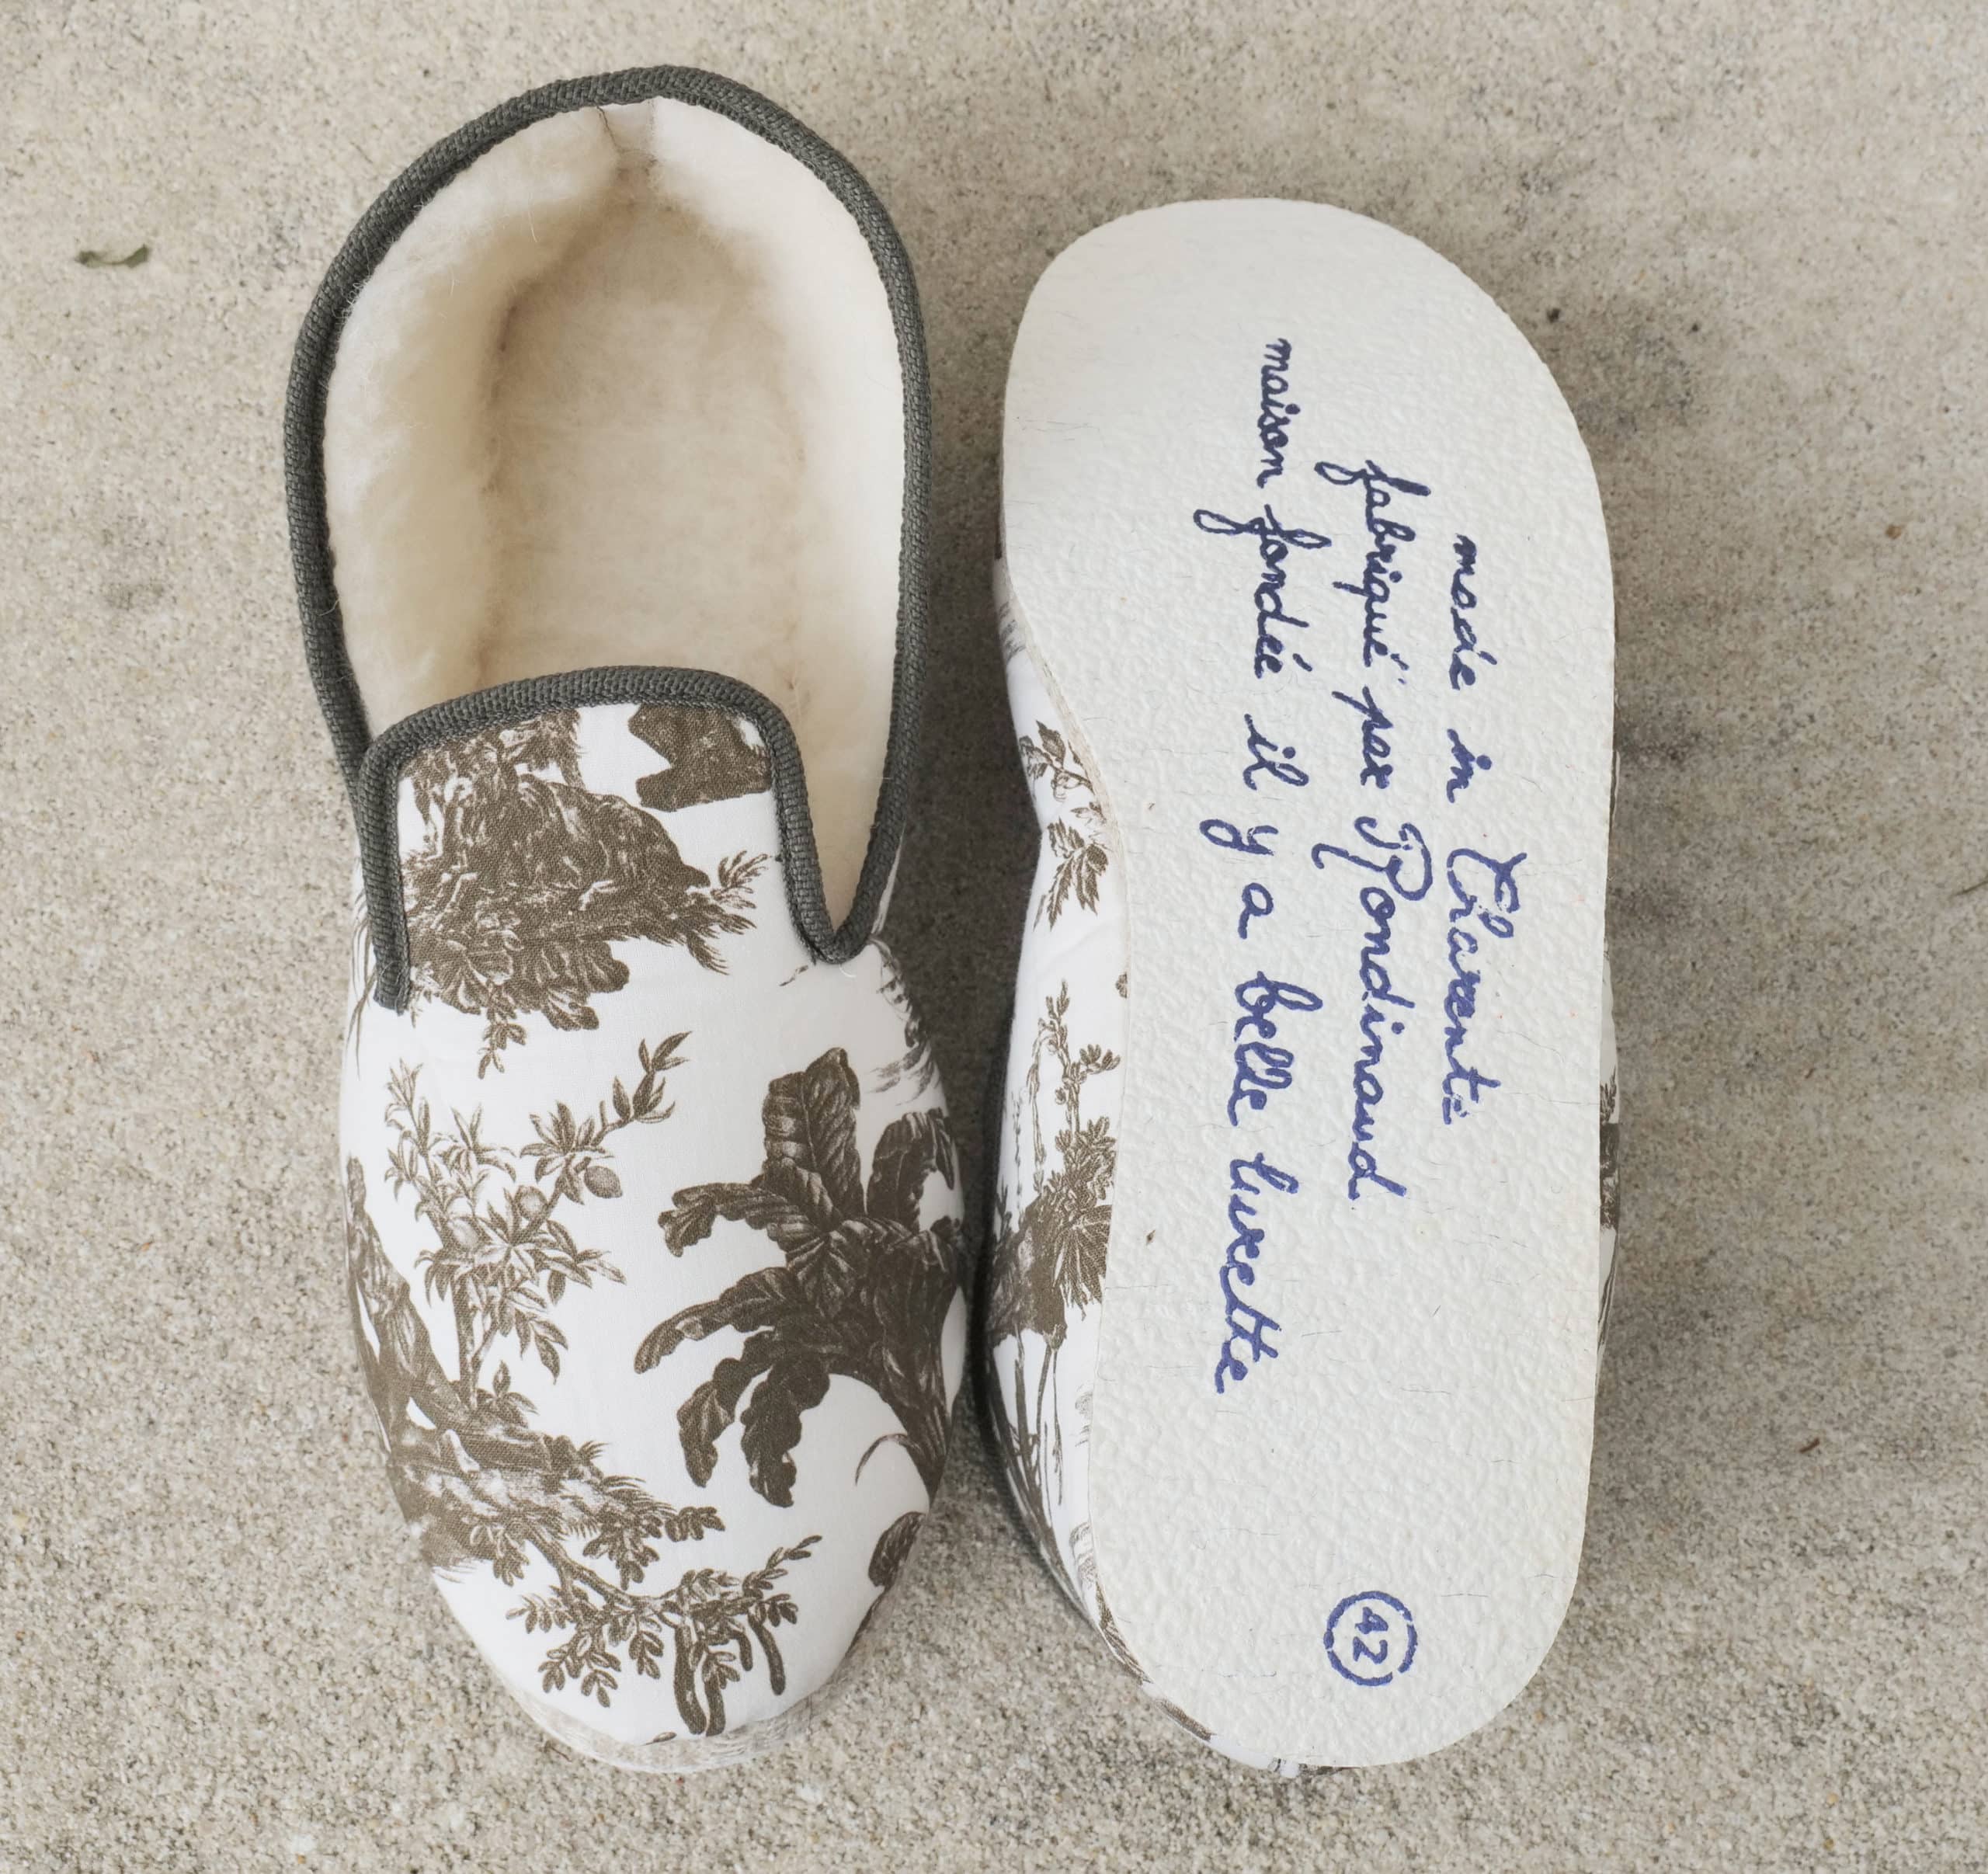 made in Charente
fabriqué par Rondinaud
maison fondée il y a belle lurette
42